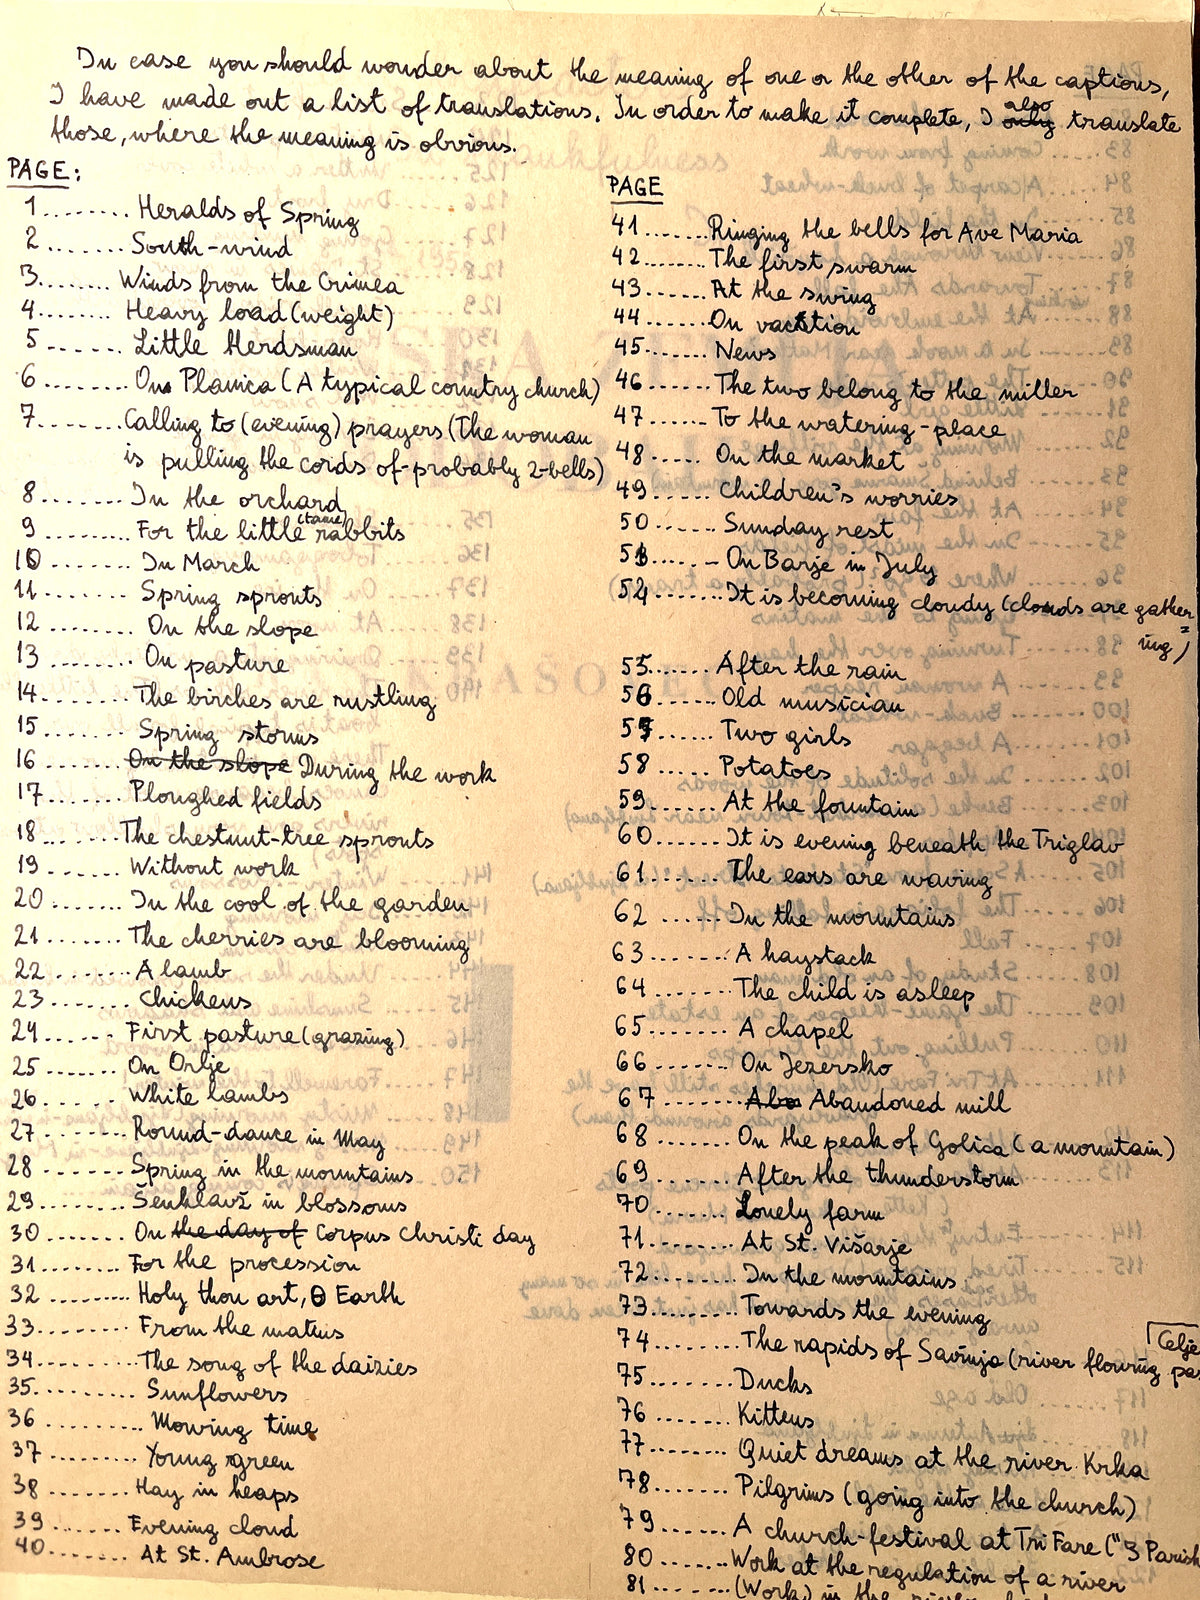 In case you should wonder about the meaning of one or the other of the captions,
I have made out a list of translations. In order to make it complete, I also translate
those, where the meaning is obvious.
PAGE:
1........ Heralds of Spring
2........ South-wind
3........ Winds from the Crimea
4........ Heavy load (weight)
5....... Little Herdsman
6........ On Planica (A typical country church)
7........ Calling to (evening) prayers (The woman
is pulling the cords of-probably 2-bells)
8....... In the orchard
9......... For the little (tame) rabbits
10........ In March
11........ Spring sprouts
12........ On the slope
13........ On pasture
14........ The birches are rustling
15....... Spring storms
16........ On the slope During the work
17....... Ploughed fields
18........ The chestnut-tree sprouts
19....... Without work
20....... In the cool of the garden
21....... The cherries are blooming
22....... A lamb
23....... Chickens
24...... First pasture (grazing)
25...... On Orlje
26...... White lambs
27....... Round-dance in May
28....... Spring in the mountains
29....... Šenklavž in blossoms
30........ On the day of Corpus Christi day
31........ For the procession
32......... Holy thou art, O Earth
33........ From the matins
34......... The song of the daizies
35......... Sunflowers
36......... Mowing time
37......... Young green
38........ Hay in heaps
39....... Evening cloud
40........ At St. Ambrose
PAGE
41....... Ringing the bells for Ave Maria
42....... The first swarm
43...... At the swing
44...... On vacation
45...... News
46...... The two belong to the miller
47...... To the watering-place
48...... On the market
49...... Children's worries
50...... Sunday rest
51...... On Barje in July
52........ It is becoming cloudy (clouds are gather=
ing)
55...... After the rain
56...... Old musician
57...... Two girls
58..... Potatoes
59....... At the fountain
60....... It is evening beneath the Triglav
61....... The ears are waving
62...... In the mountains
63....... A haystack
64....... The child is asleep
65........ A chapel
66....... On Jezersko
67........ Abandoned mill
68....... On the peak of Golica (a mountain)
69....... After the thunderstorm
70........ Lonely farm
71........ At St. Višarje
72........ In the mountains
73........ Towards the evening
74........ The rapids of Savinja (river flowing
Celje
75....... Ducks
76....... Kittens
77........ Quiet dreams at the river Krka
78........ Pilgrims (going into the church)
79....... A church-festival at Tri Fare ("3 Parish
80....... Work at the regulation of a river
81....... (Work) in the